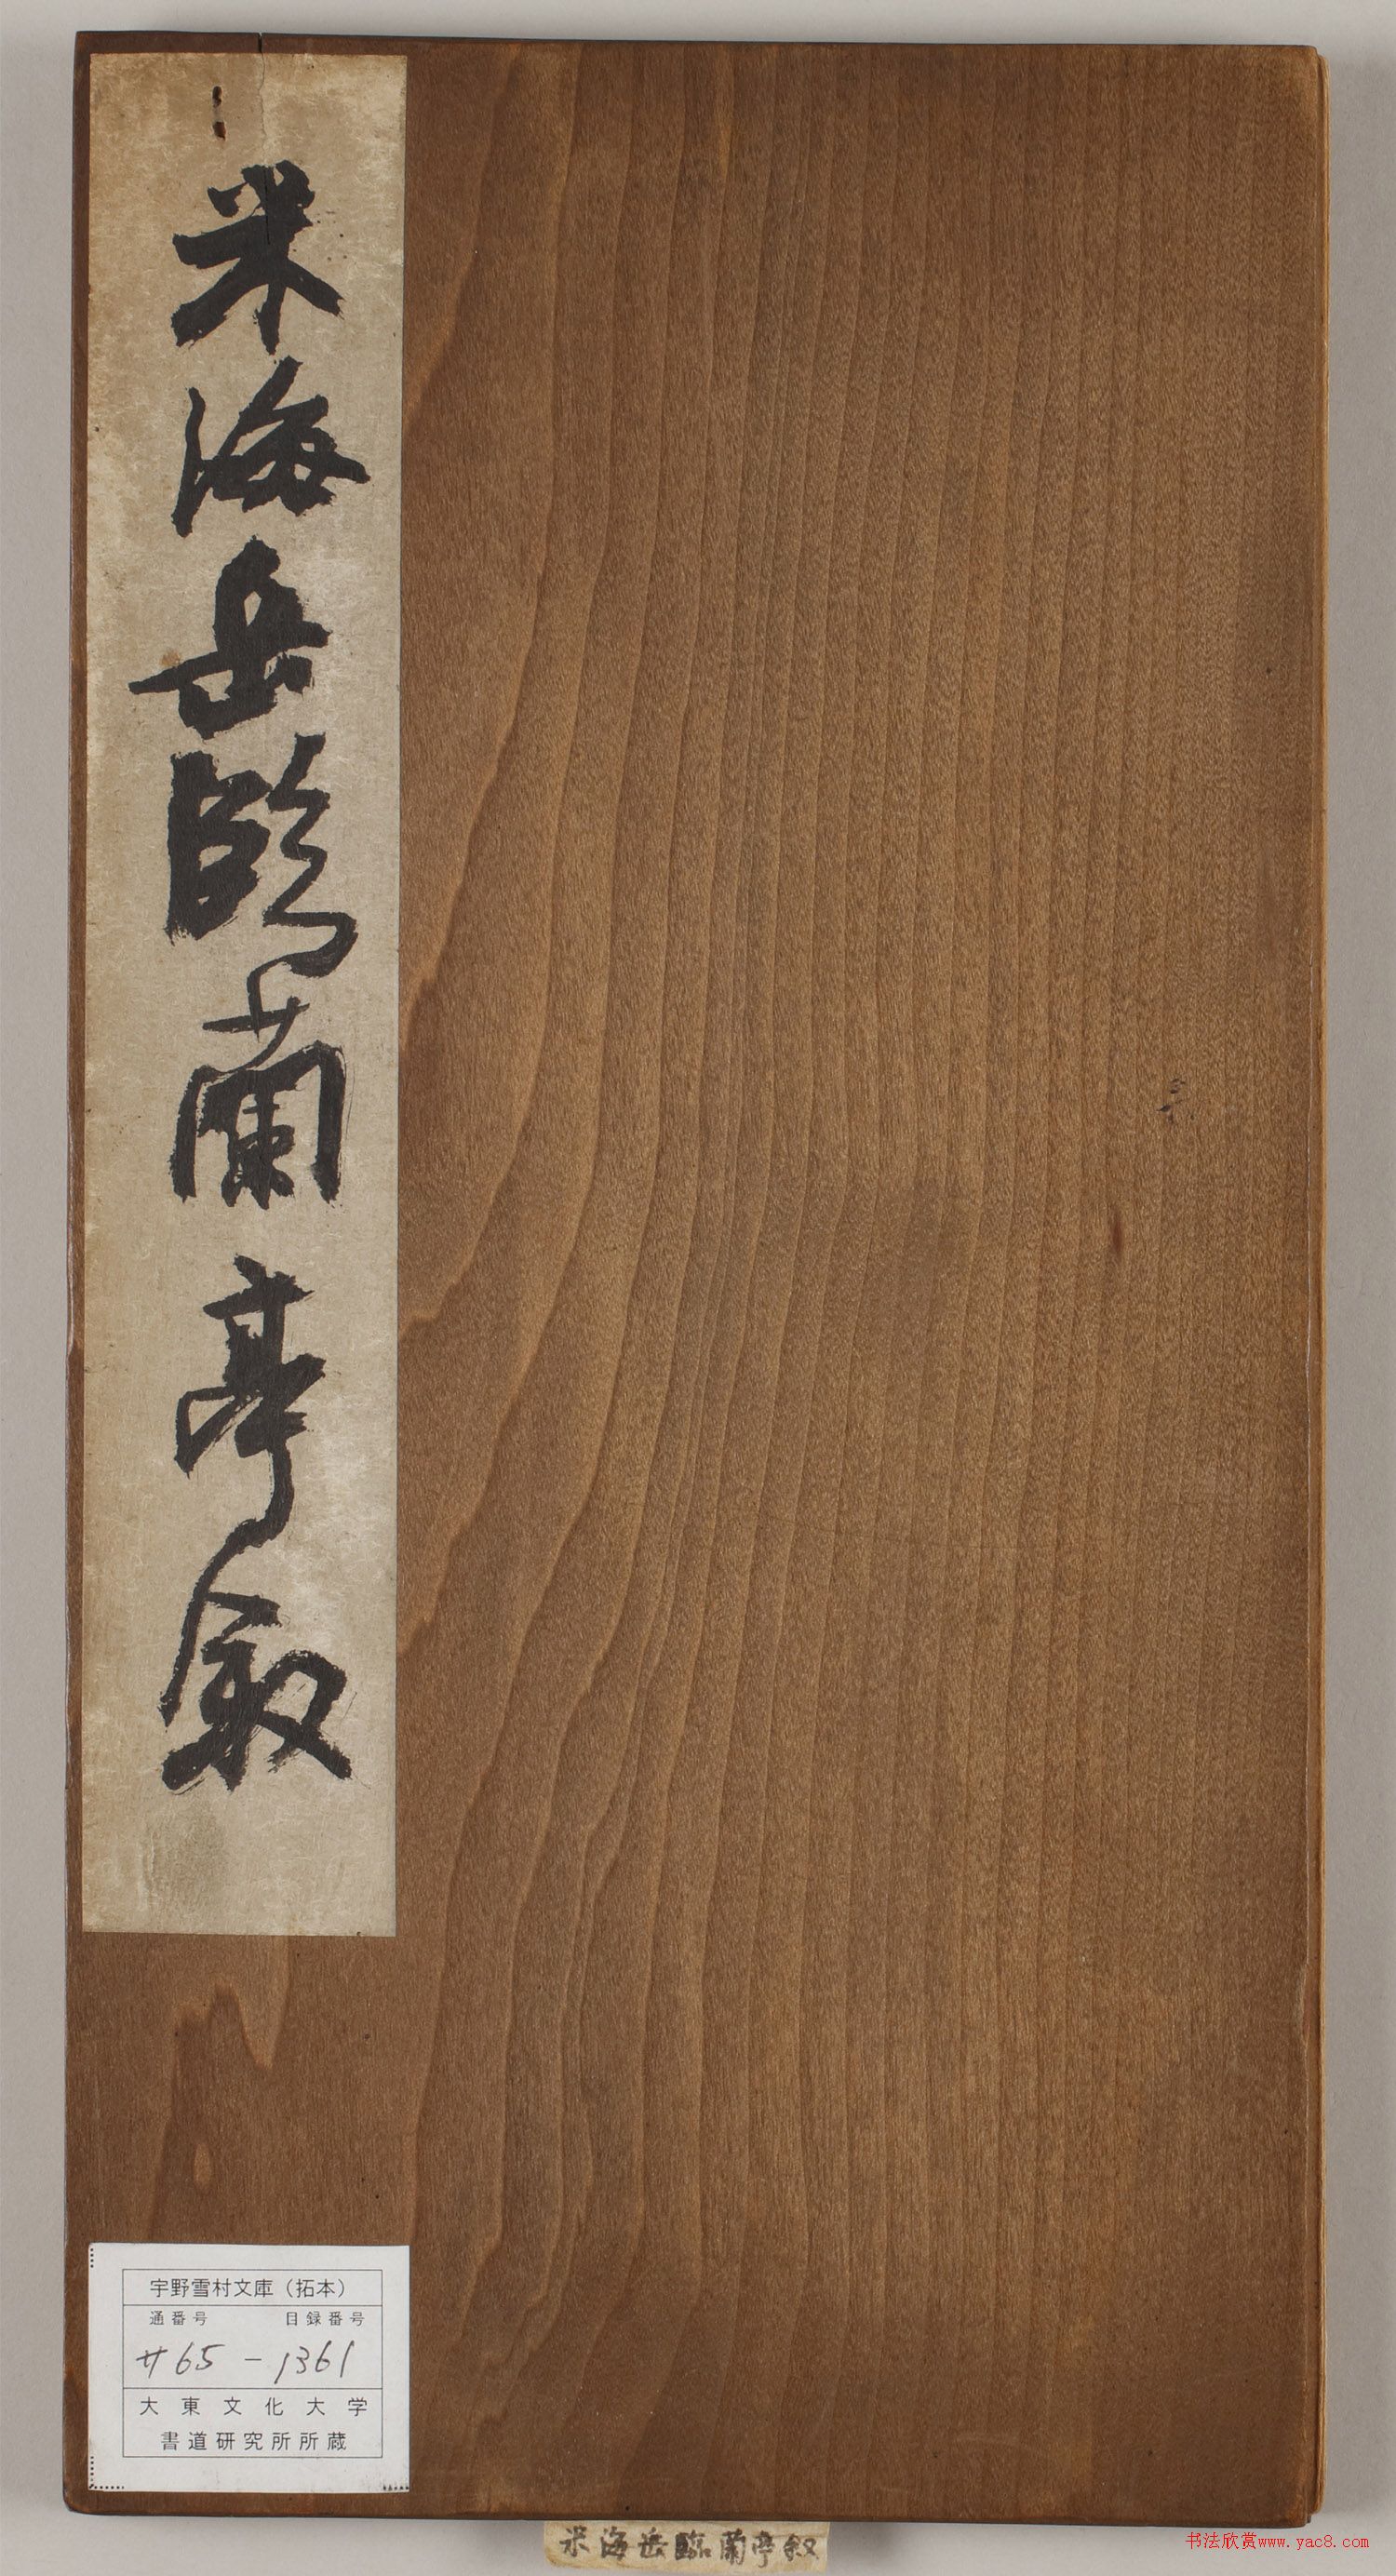 米海岳臨蘭亭叙
宇野雪村文庫（拓本）
通番号 目録番号
サ65-1361
大東文化大学
書道研究所所蔵
米海岳臨蘭亭叙
书法欣赏www.yac8.com